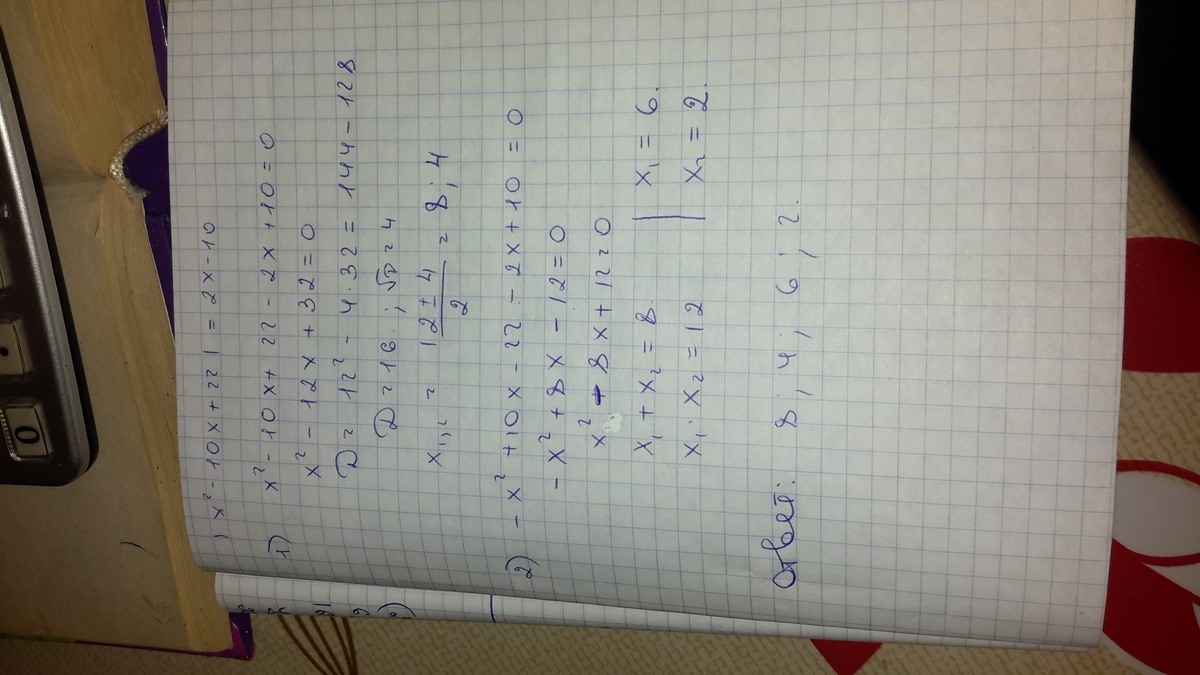 |x² - 10x + 22| = 2x - 10
1) x² - 10x + 22 - 2x + 10 = 0
x² - 12x + 32 = 0
D = 12² - 4·32 = 144 - 128
D = 16; √D = 4
x₁,₂ = (12 ± 4)/2 = 8; 4
2) -x² + 10x - 22 - 2x + 10 = 0
-x² + 8x - 12 = 0
x² - 8x + 12 = 0
x₁ + x₂ = 8 | x₁ = 6.
x₁ · x₂ = 12 | x₂ = 2.
Ответ: 8; 4; 6; 2.
0